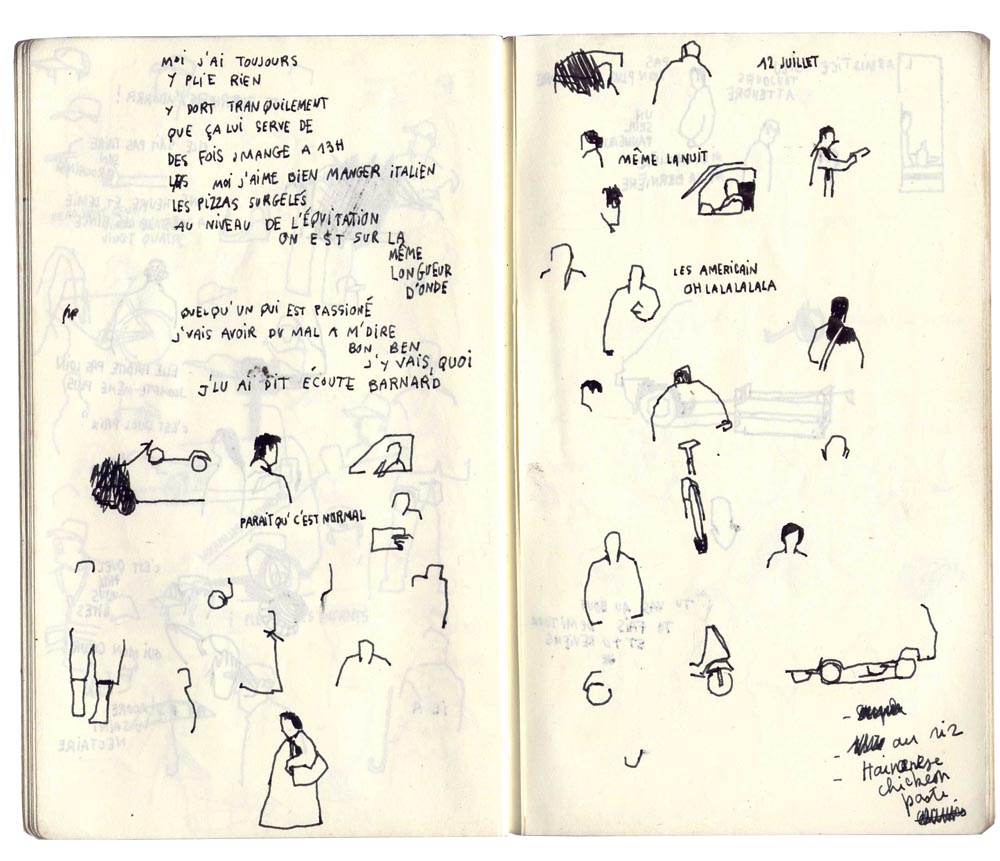 MOI J'AI TOUJOURS
Y PLIE RIEN
Y DORT TRANQUILEMENT
QUE ÇA LUI SERVE DE
DES FOIS J MANGE A 13H
MOI J'AIME BIEN MANGER ITALIEN
LES PIZZAS SURGELÉS
AU NIVEAU DE L'ÉQUITATION
ON EST SUR LA
MÊME
LONGUEUR
D'ONDE
QUELQU'UN QUI EST PASSIONÉ
J'VAIS AVOIR DU MAL A M'DIRE
BON BEN
J'Y VAIS, QUOI
J'LU AI DIT ÉCOUTE BARNARD
PARAIT QU'C'EST NORMAL
12 JUILLET
MÊME LA NUIT
LES AMERICAIN
OH LALALALALA
- au riz
- Hainanese
chicken
paste